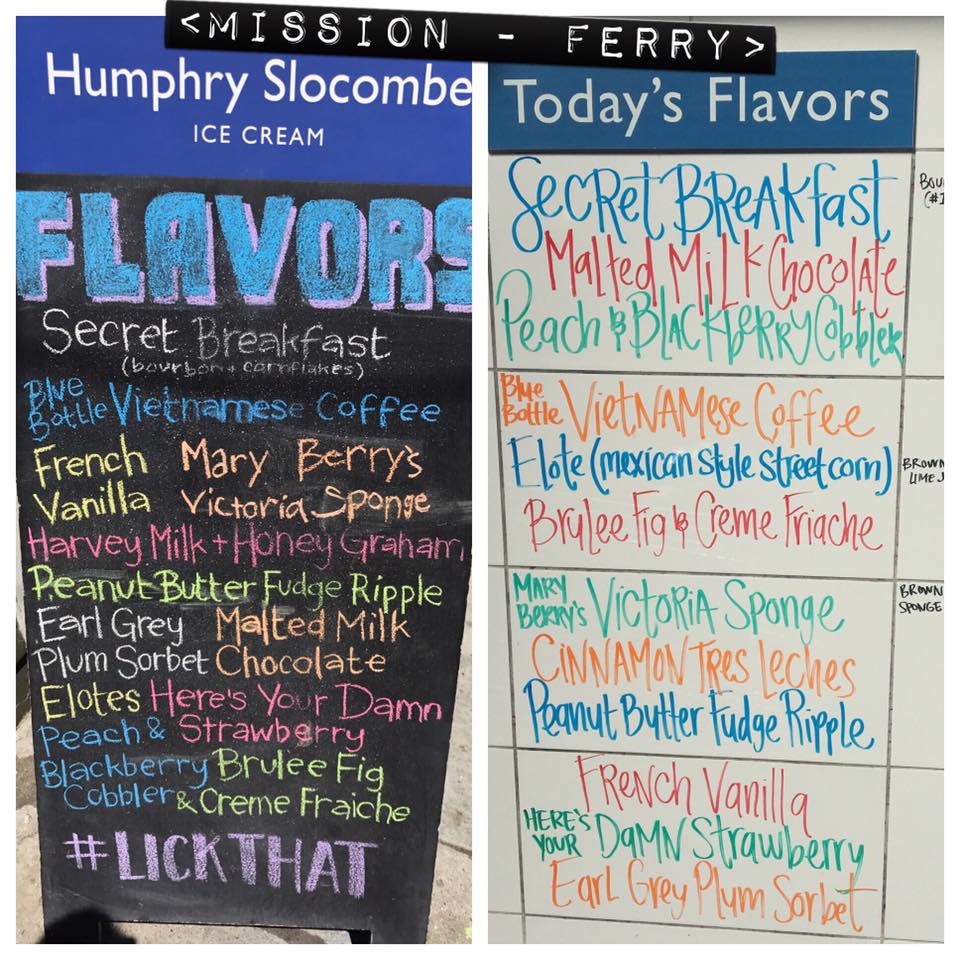 <MISSION - FERRY>
Humphry Slocombe
ICE CREAM
FLAVORS
Secret Breakfast
(bourbon + cornflakes)
Blue
Bottle Vietnamese Coffee
French Mary Berry's
Vanilla Victoria Sponge
Harvey Milk + Honey Graham
Peanut Butter Fudge Ripple
Earl Grey Malted Milk
Plum Sorbet Chocolate
Elotes Here's Your Damn
Peach & Strawberry
Blackberry Brulee Fig
Cobbler & Creme Fraiche
#LICKTHAT
Today's Flavors
Secret BreAkfast
Malted Milk Chocolate
Peach & BlAckberry Cobbler
Blue
Bottle VietNAMese Coffee
Elote (mexican style street corn)
Brulee Fig & Creme Friache
MARY
BERRY'S VictoRiA Sponge
CiNNAMON Tres Leches
Peanut Butter Fudge Ripple
FReNch Vanilla
HERE'S
YOUR DAMN Strawberry
EArL Grey Plum Sorbet
BROWN
LIME
BROWN
SPONGE